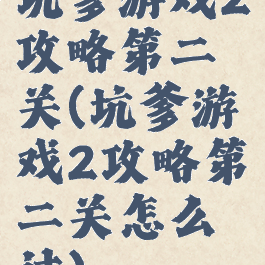 坑爹游戏2
攻略第二
关(坑爹游
戏2攻略第
二关怎么
过)